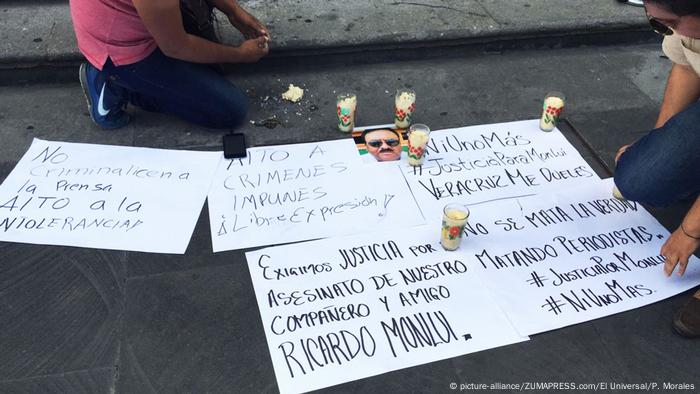 No
Criminalicen a
la Prensa
ALTO a la
INTOLERANCIA!
ALTO A
CRIMENES
IMPUNES
¡LibreExpresión!
Ni Uno Más
#JusticiaParaMonlui
VERACRUZ Me DUELES
EXIGIMOS JUSTICIA POR
ASESINATO DE NUESTRO
COMPAÑERO Y AMIGO
RICARDO MONLUI.
NO SE MATA LA VERDAD
MATANDO PERIODISTAS.
#JUSTICIAPORMONLUI
#NIUNOMAS.
© picture-alliance/ZUMAPRESS.com/El Universal/P. Morales